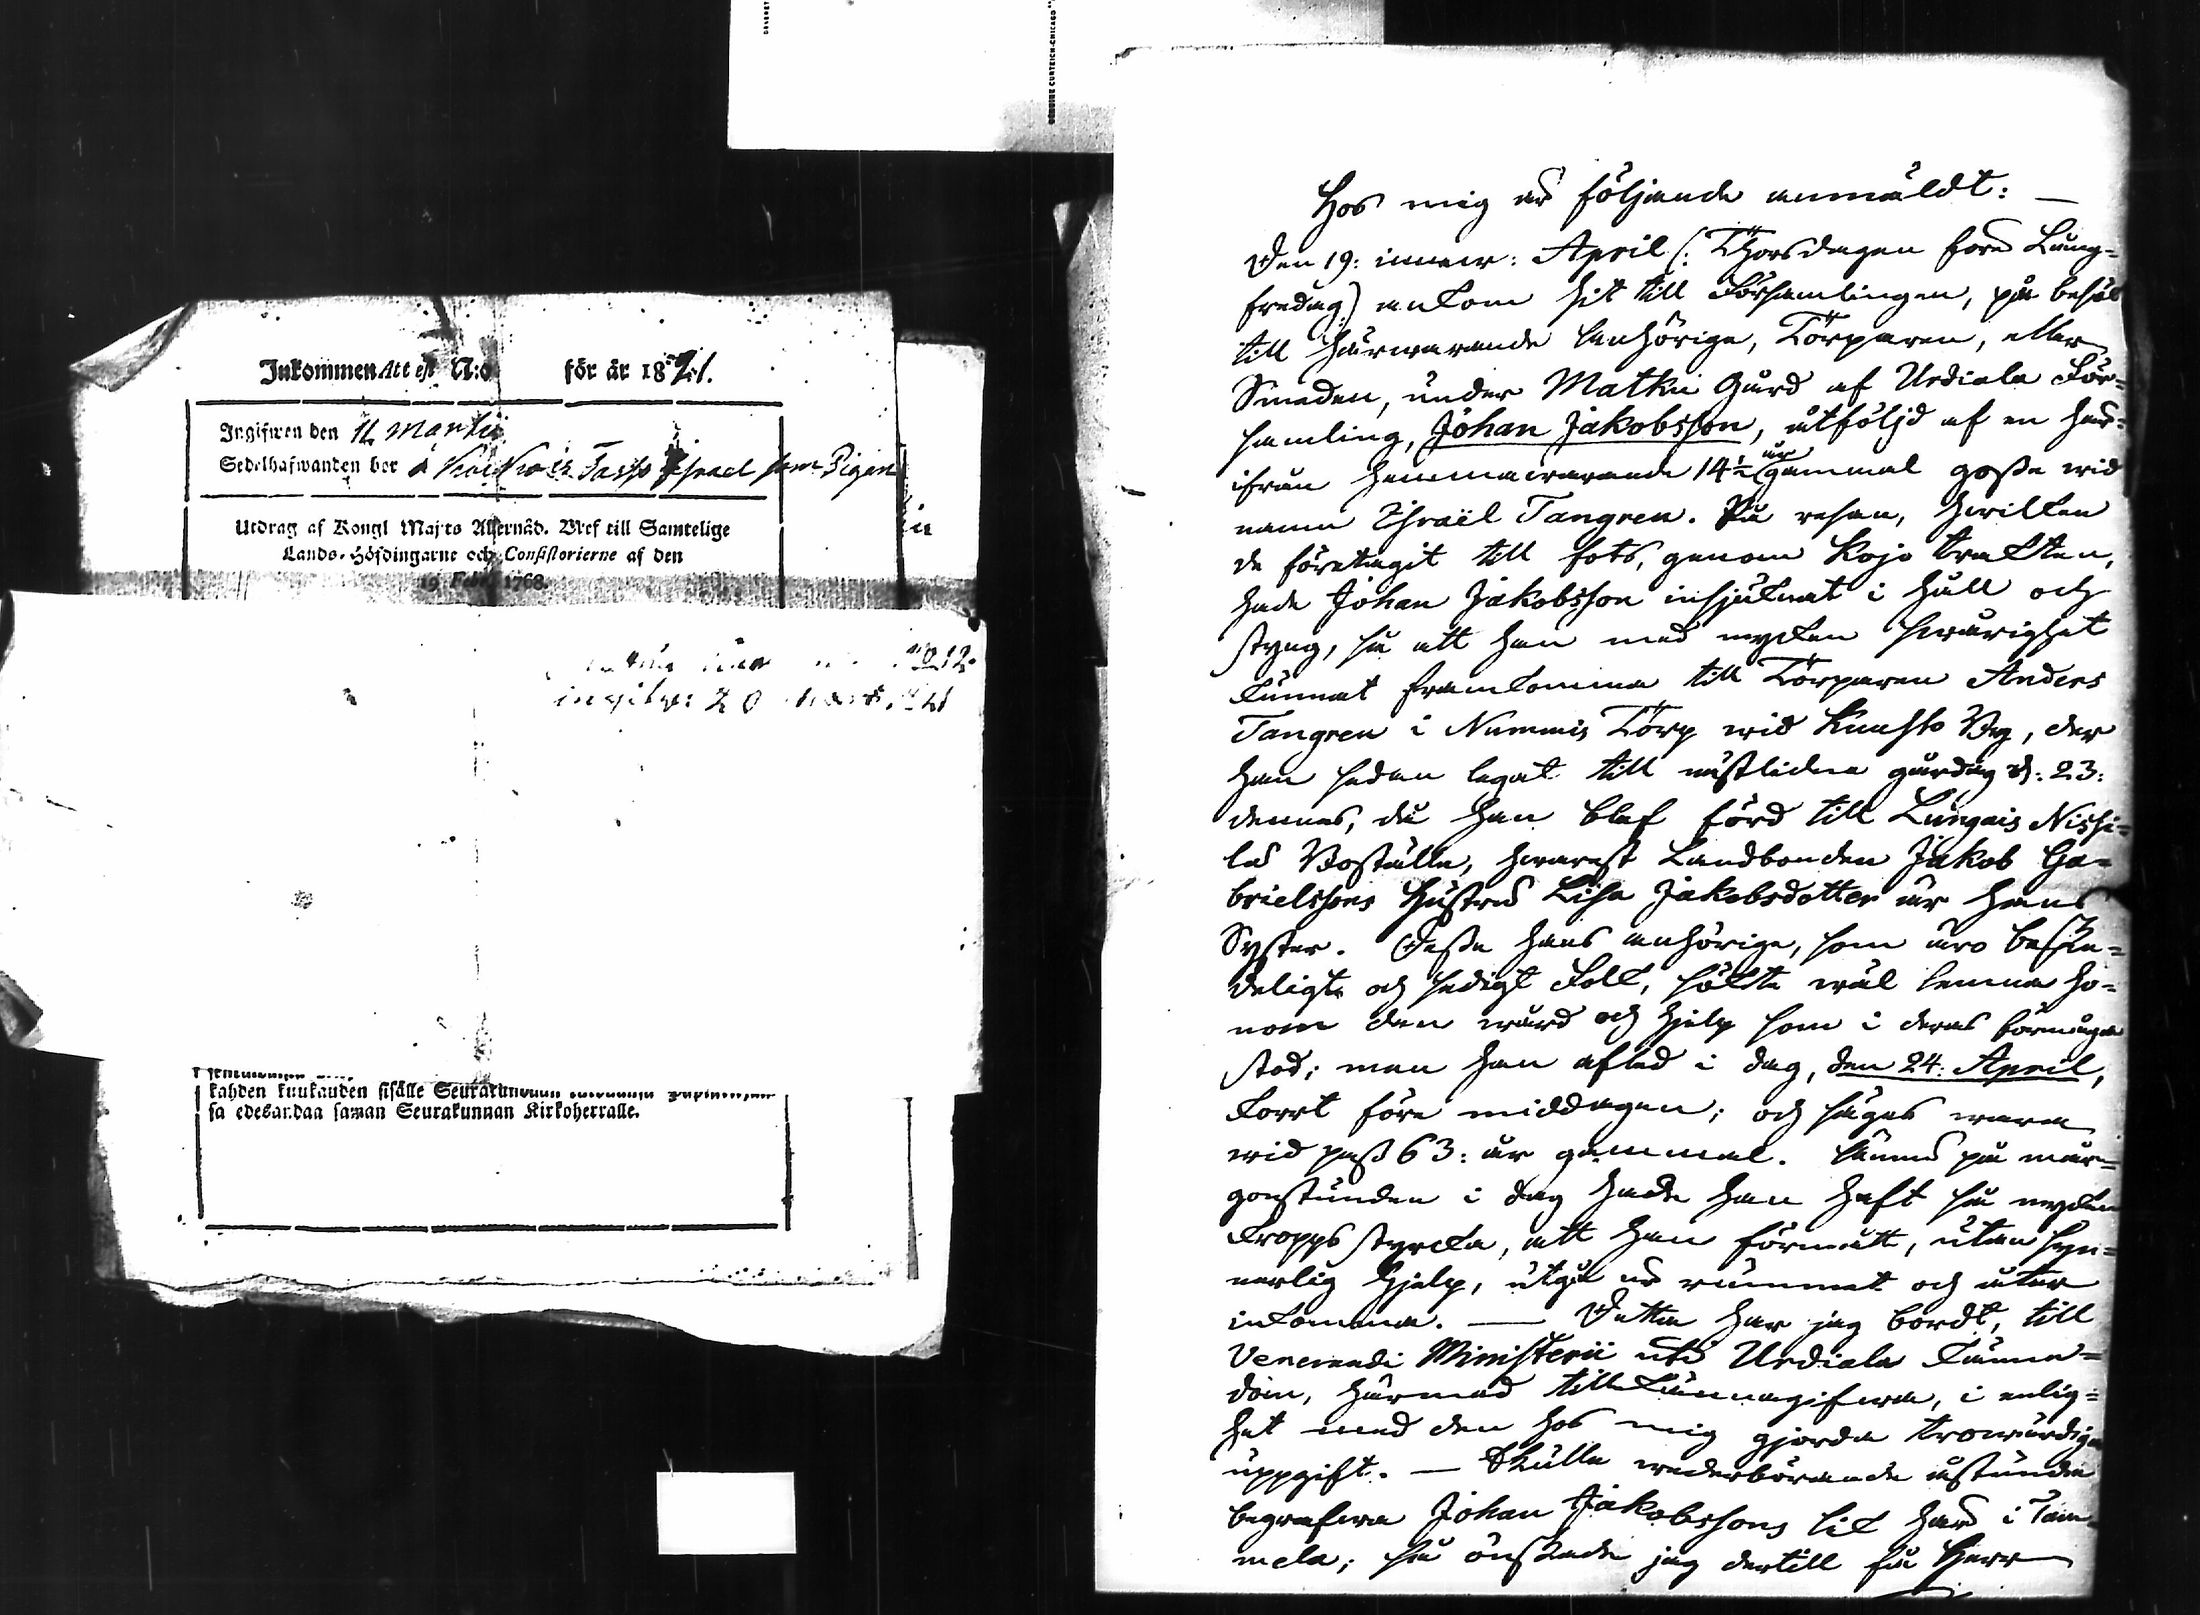 Inkommen Att est N:o för år 1821.
Ingifwen den 12 Martii
Sedelhafwanden bor å Israel som Pigan
Utdrag af Kongl Maj:ts Allernåd. Bref till Samtelige
Lands-Höfdingarne och Consistorierne af den
19 Febr. 1768.
kahden kuukauden sisälle Seurakunnan
sa edesandaa saman Seurakunnan Kirkoherralle.
Hos mig är följande anmäldt: —
Den 19: innew: April (: Thorsdagen före Lång-
fredag) ankom hit till Församlingen, på besök
till härwarande anhörige, Torparen, eller
Smeden, under Matku Gård af Urdiala För-
samling, Johan Jakobsson, åtföljd af en här-
ifrån hemmawarande 14½ år gammal gosse wid
namn Israël Tangren. På resan, hwilken
de företagit till fots, genom Kojo trakten,
hade Johan Jakobsson insjuknat i håll och
styng, så att han med mycken swårighet
kunnat framkomma till Torparen Anders
Tangren i Nummis Torp wid Kuusto By, der
han sedan legat till nästlidne gårdag d: 23:
dennes, då han blef förd till Lungais Nissi-
lä Boställe, hwarest Landbonden Jakob Ga-
brielssons Hustru Lisa Jakobsdotter är hans
Syster. Desse hans anhörige, som äro beske-
deligt och sedigt Folk, sökte wäl lemna ho-
nom den wård och hjelp som i deras förmåga
stod; men han afled i dag, den 24: April,
kort före middagen; och säges wara
wid pass 63: år gammal. Ännu på mår-
gonstunden i dag hade han haft så mycken
kropps styrcka, att han förmått, utan syn-
nerlig hjelp, utgå ur rummet och åter
inkomma. — Detta har jag bordt, till
Venerandi Ministerii uti Urdiala känne-
dom, härmed tillkännagifwa, i enlig-
het med den hos mig gjorda trowärdiga
uppgift. — Skulle wederbörande åstunda
begrafwa Johan Jakobssons lik här i Tam-
mela; så önskade jag dertill få Herr